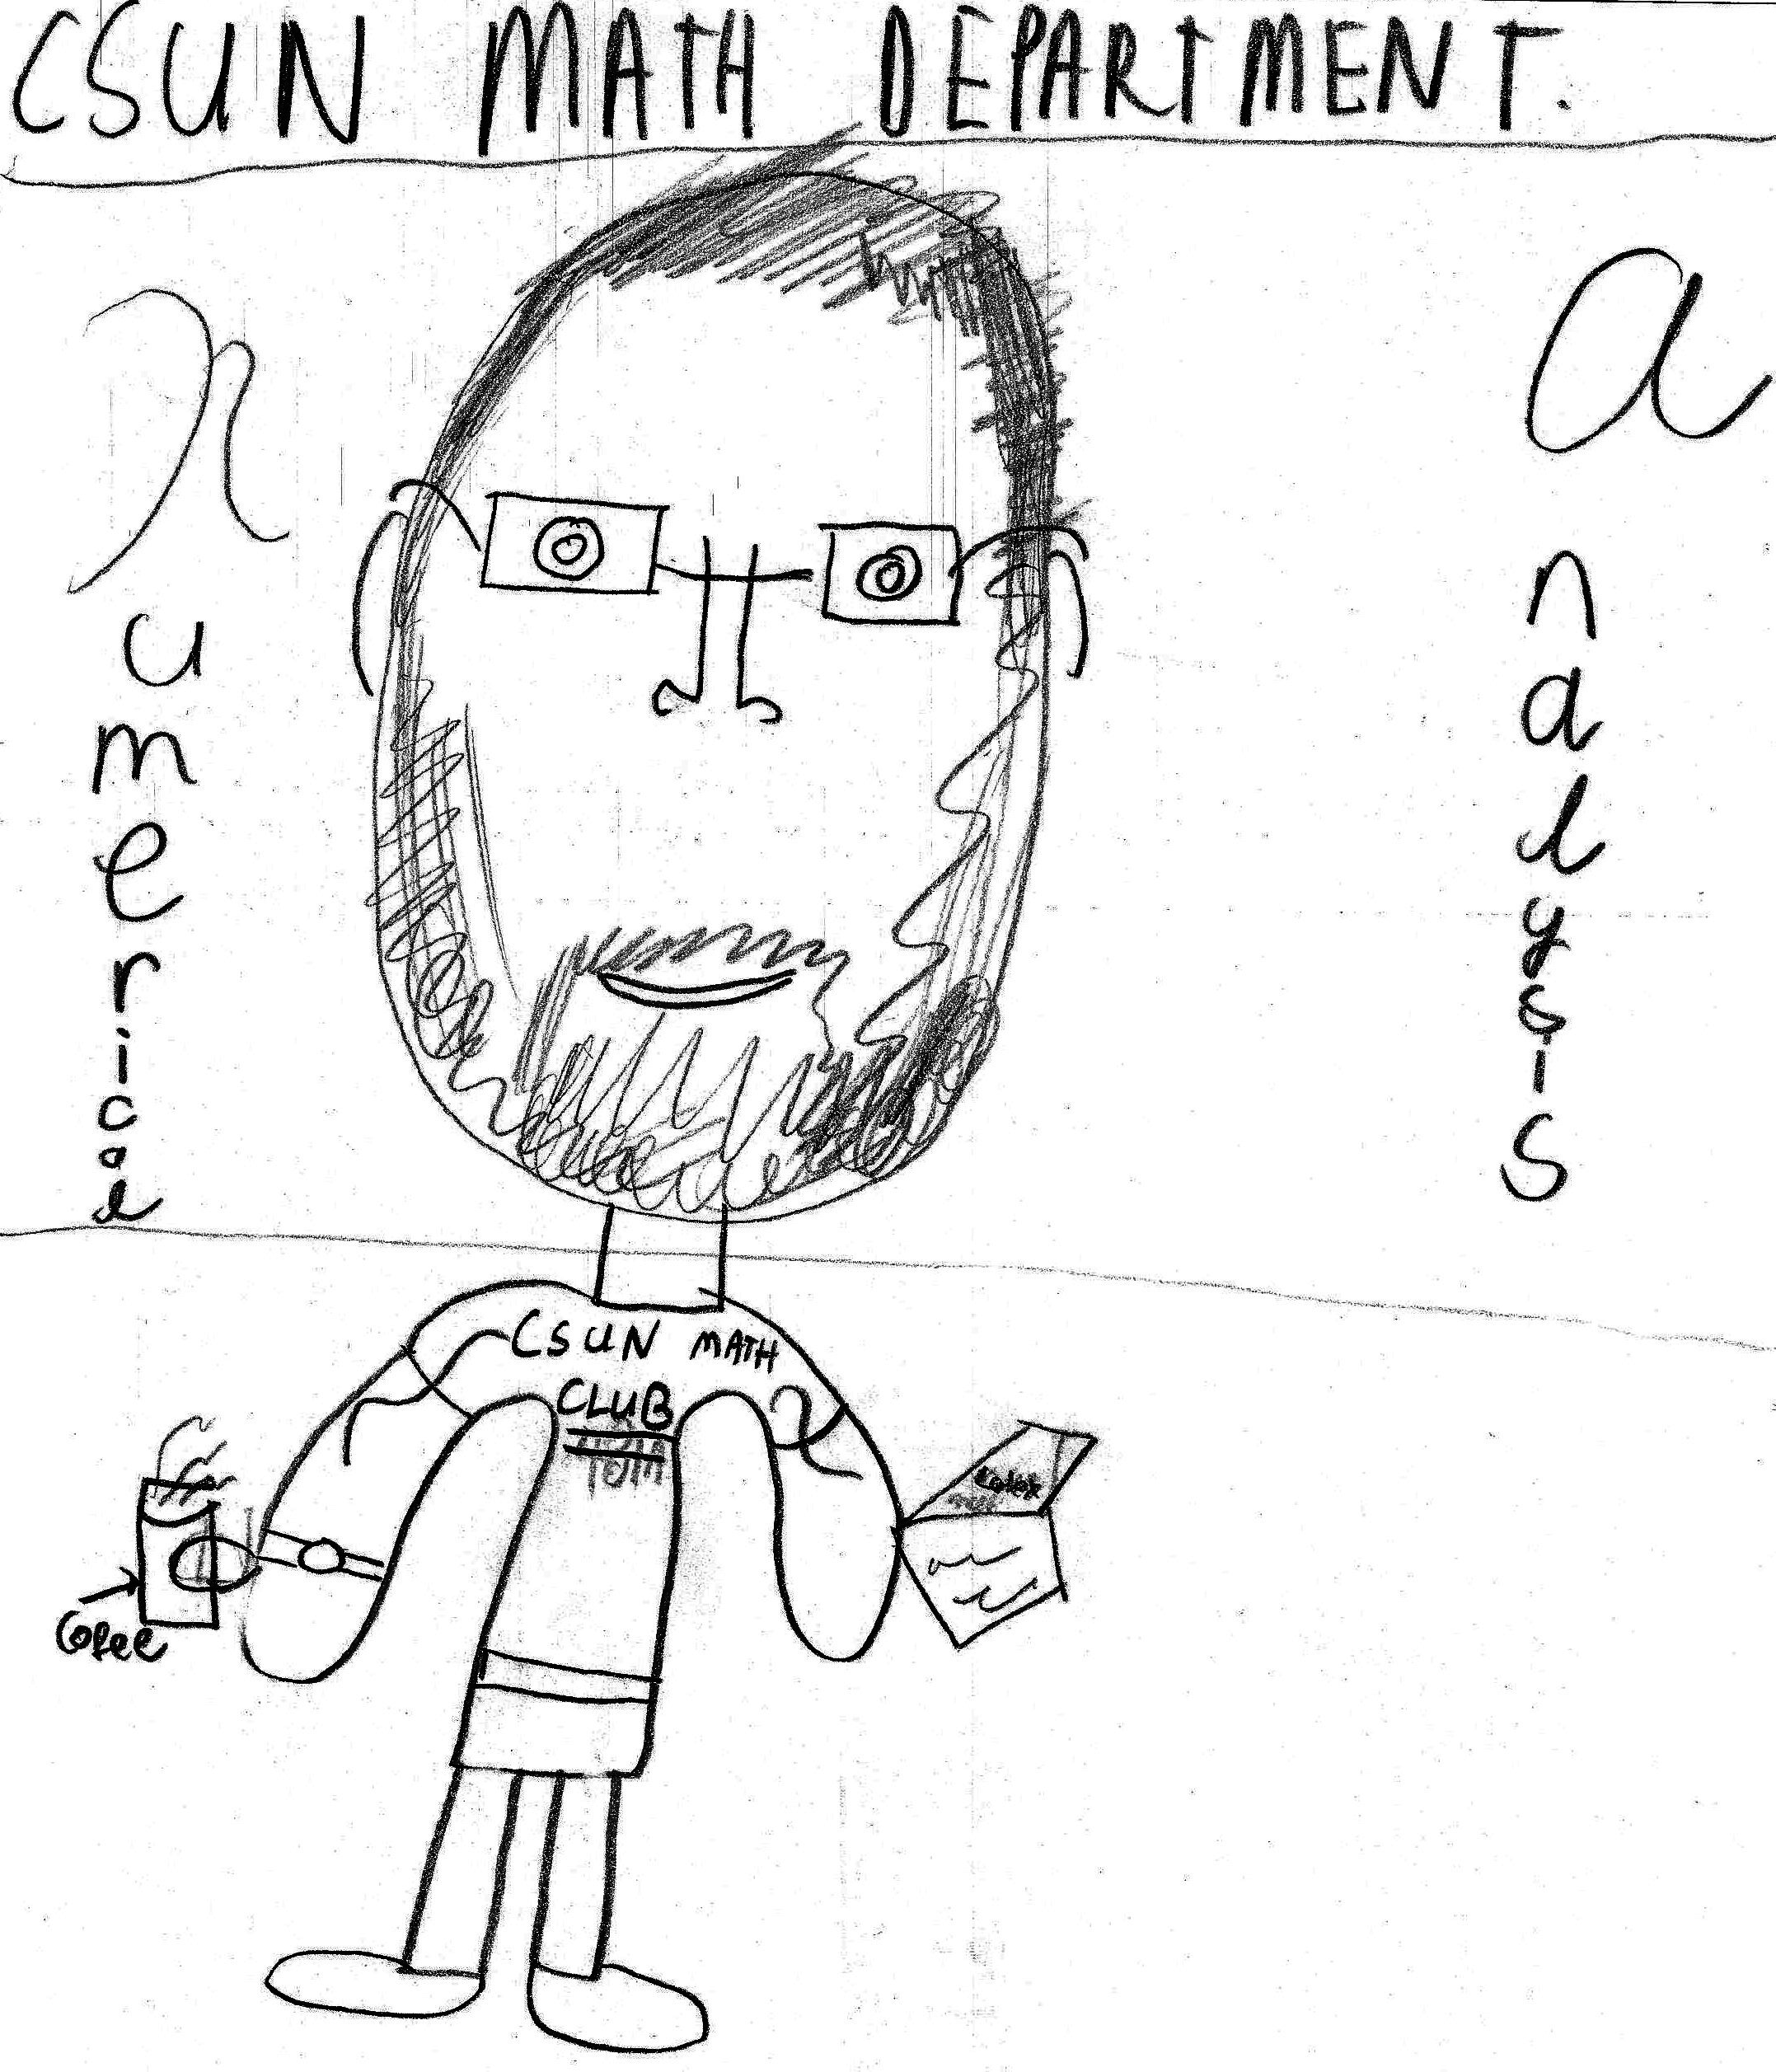 CSUN MATH DEPARTMENT.
Numerical
analysis
CSUN MATH
CLUB
Cofee